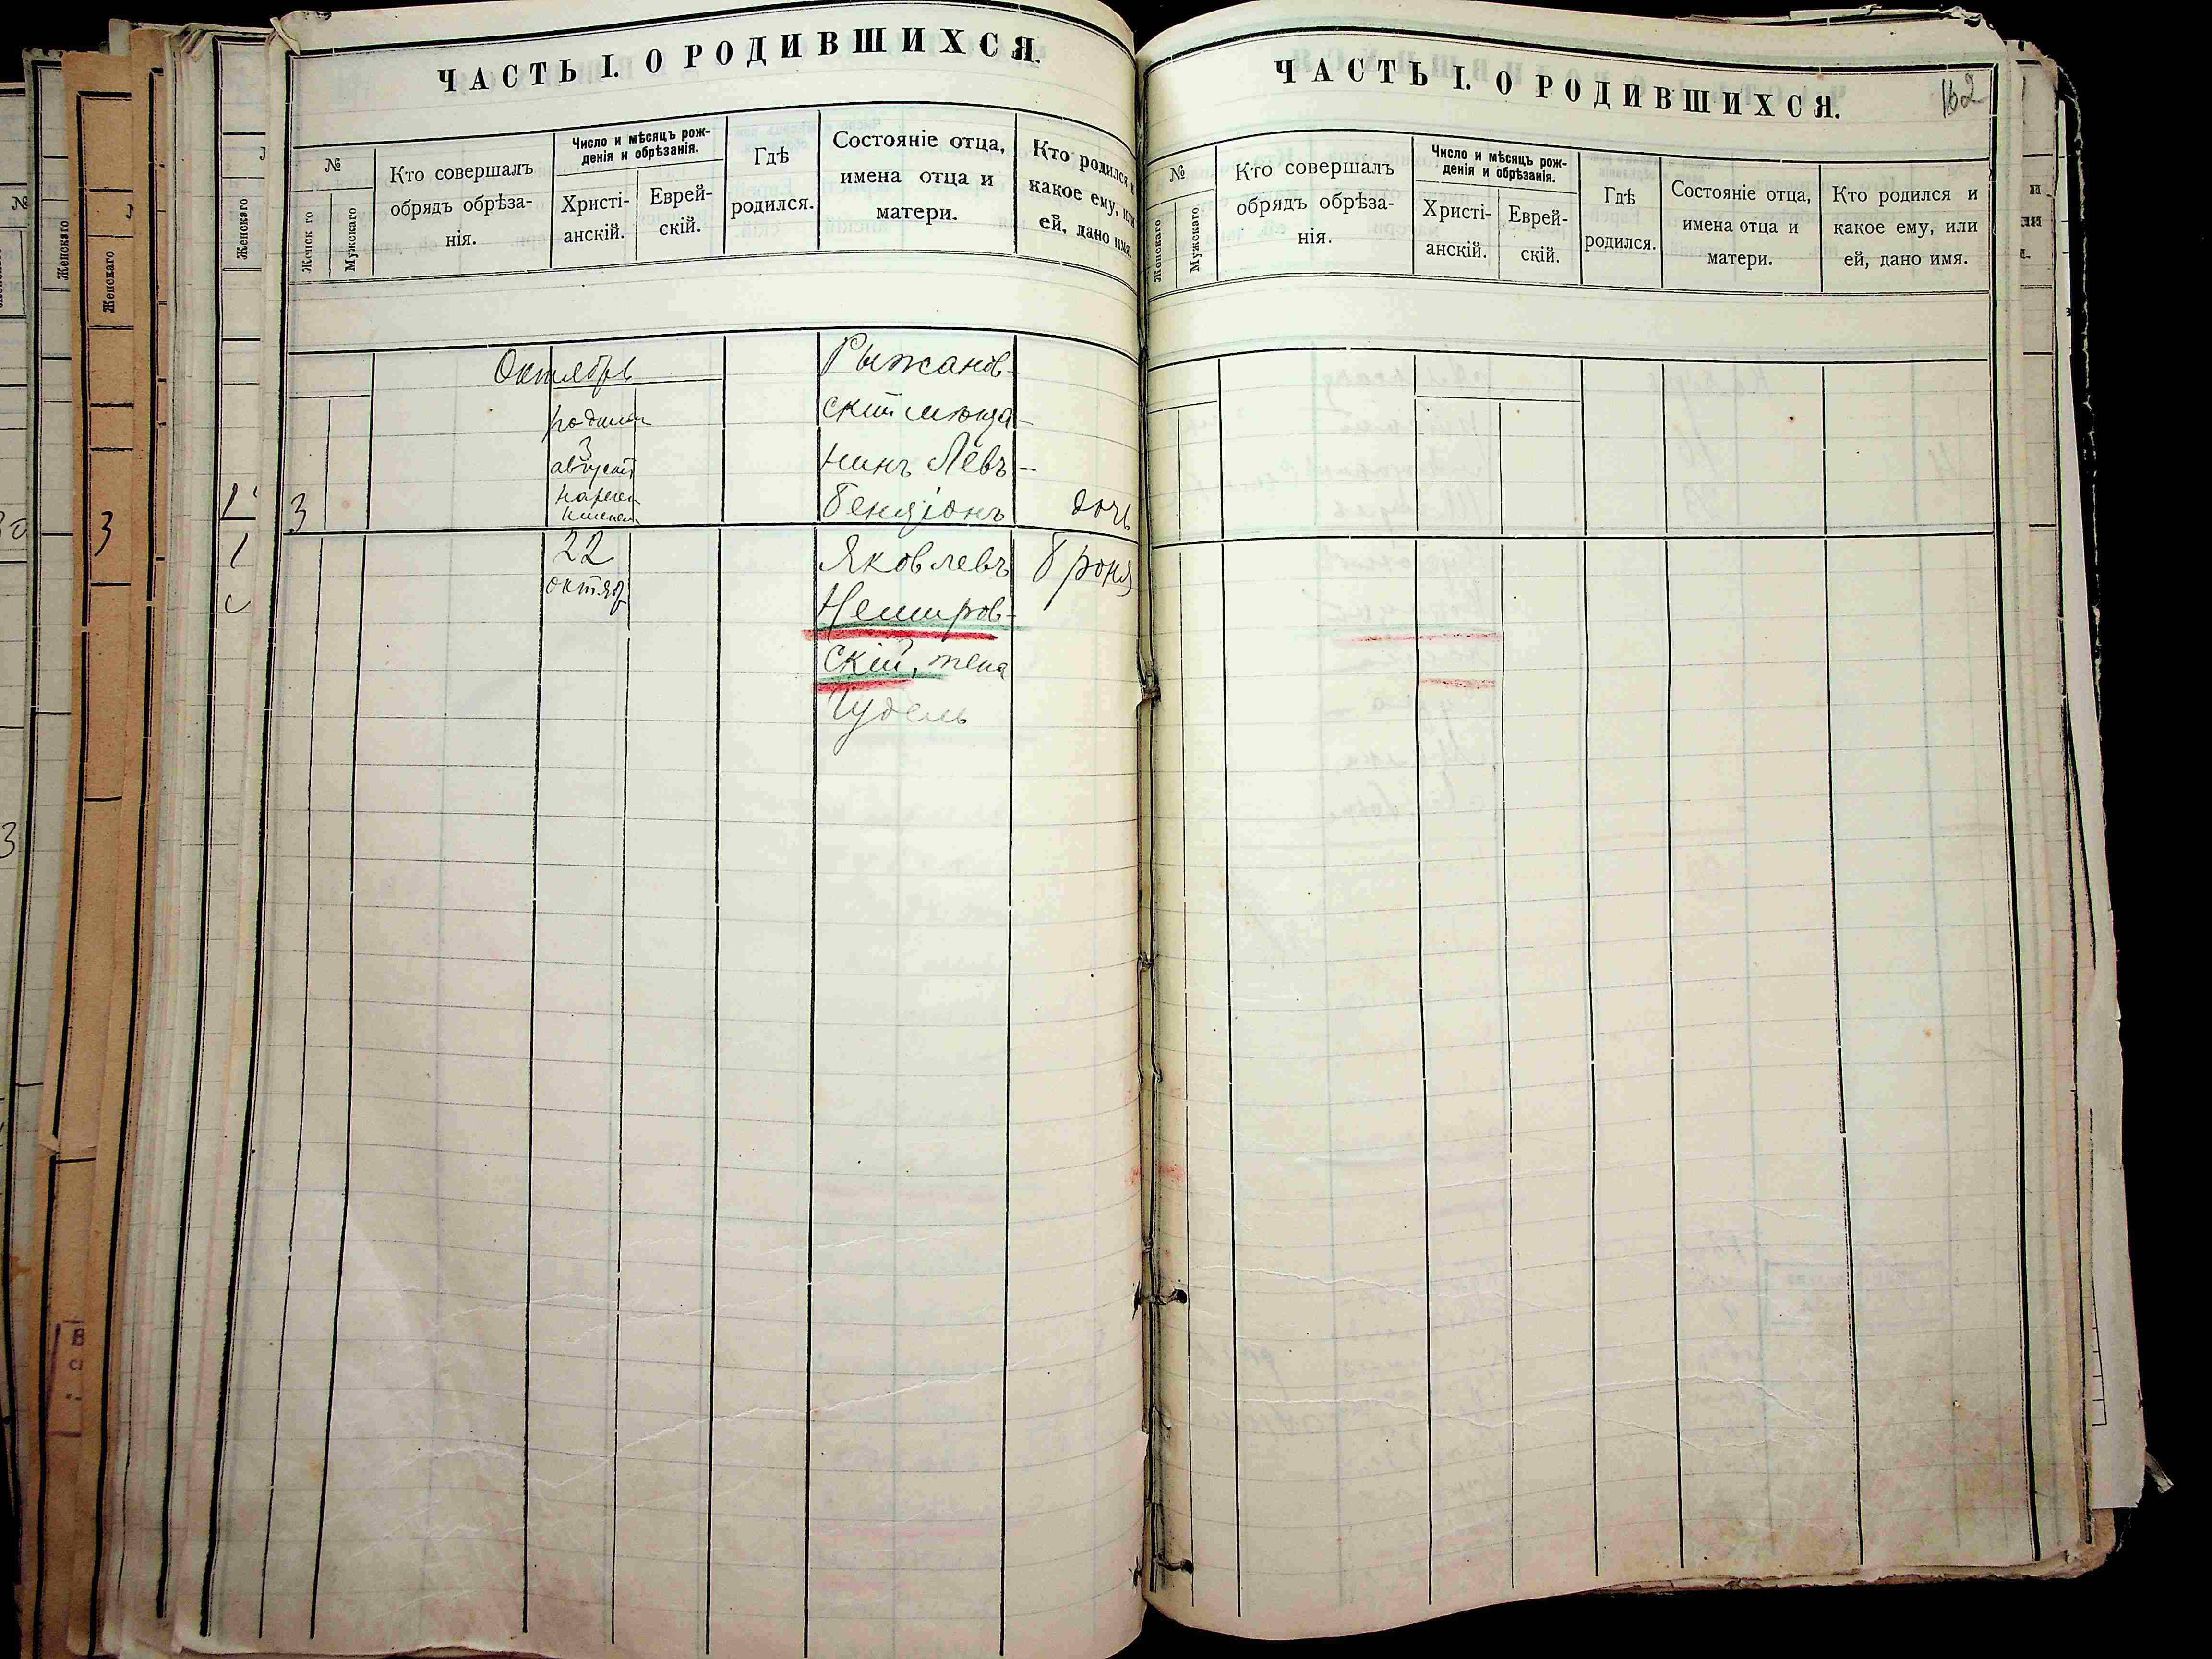 ЧАСТЬ I. О РОДИВШИХСЯ.
№
Женскаго
Мужскаго
Кто совершалъ
обрядъ обрѣза-
нія.
Число и мѣсяцъ рож-
денія и обрѣзанія.
Христі-
анскій.
Еврей-
скій.
Гдѣ
родился.
Состояніе отца,
имена отца и
матери.
Кто родился и
какое ему, или
ей, дано имя.
Октябрь
3
родилась
3
августа
нареч
именем
22
октяб
Рыжанов-
скій мѣща-
нинъ Левъ-
Бенціонъ
Яковлевъ
Немиров-
скій, жена
Гудель
дочь
Броня
ЧАСТЬ I. О РОДИВШИХСЯ.
162
№
Женскаго
Мужскаго
Кто совершалъ
обрядъ обрѣза-
нія.
Число и мѣсяцъ рож-
денія и обрѣзанія.
Христі-
анскій.
Еврей-
скій.
Гдѣ
родился.
Состояніе отца,
имена отца и
матери.
Кто родился и
какое ему, или
ей, дано имя.
Женскаго
Женскаго
Женскаго
3
3